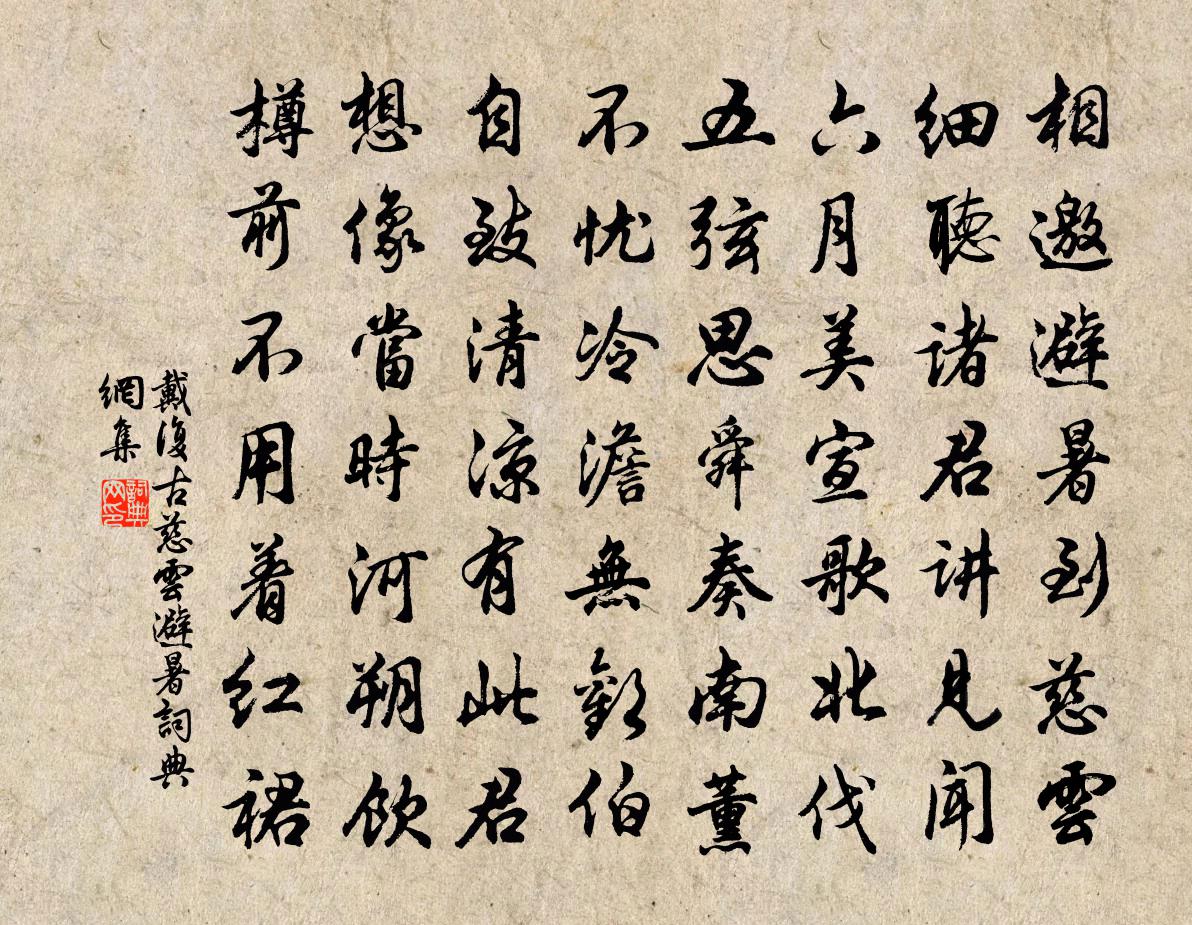 相邀避暑到慈雲
細聽諸君讲見聞
六月美宣歌北伐
五弦思舜奏南薰
不忧冷澹無歡伯
自致清凉有此君
想像當時河朔飲
樽前不用着紅裙
戴復古慈雲避暑詞典
網集
詞典
网印